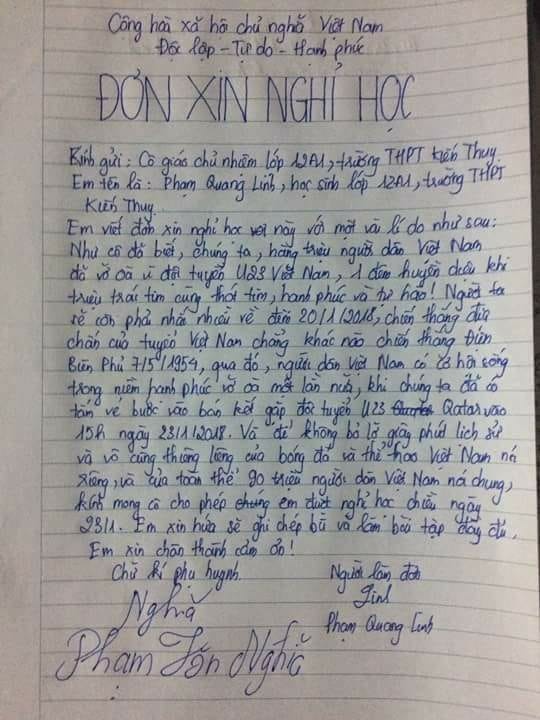 Cộng hoà xã hội chủ nghĩa Việt Nam
Độc lập - Tự do - Hạnh phúc
ĐƠN XIN NGHỈ HỌC
Kính gửi: Cô giáo chủ nhiệm lớp 12A1, trường THPT Kiến Thụy.
Em tên là: Phạm Quang Linh, học sinh lớp 12A1, trường THPT
Kiến Thụy.
Em viết đơn xin nghỉ học này với một vài lí do như sau:
Như cô đã biết, chúng ta, hàng triệu người dân Việt Nam
đã vỡ oà vì đội tuyển U23 Việt Nam, 1 đêm huyền diệu khi
triệu trái tim cùng thót tim, hạnh phúc và tự hào! Người ta
sẽ còn phải nhắc nhiều về đêm 20/1/2018, chiến thắng đứa
chấn của tuyển Việt Nam chẳng khác nào chiến thắng Điện
Biên Phủ 7/5/1954, qua đó, người dân Việt Nam có cơ hội sống
trong niềm hạnh phúc vỡ oà một lần nữa, khi chúng ta đã có
tấn vé bước vào bán kết gặp đội tuyển U23 Qatar vào
15h ngày 23/1/2018. Và để không bỏ lỡ giây phút lịch sử
và vô cùng thiêng liêng của bóng đá và thể thao Việt Nam nói
riêng, và của toàn thể 90 triệu người dân Việt Nam nói chung,
kính mong cô cho phép chúng em được nghỉ học chiều ngày
23/1. Em xin hứa sẽ ghi chép bù và làm bài tập đầy đủ.
Em xin chân thành cảm ơn!
Chữ kí phụ huynh. Người làm đơn
Nghĩa Linh
Phạm Văn Nghĩa Phạm Quang Linh